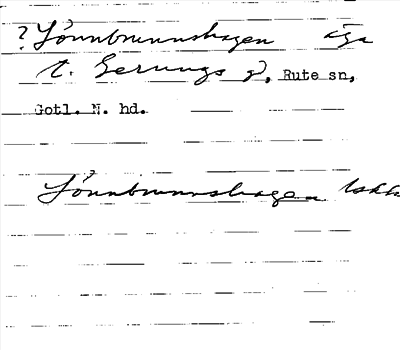 ? Sönnbrunnshagen äga
t. Gerungs g, Rute sn,
Gotl. N. hd.
Sönnbrunnshagen